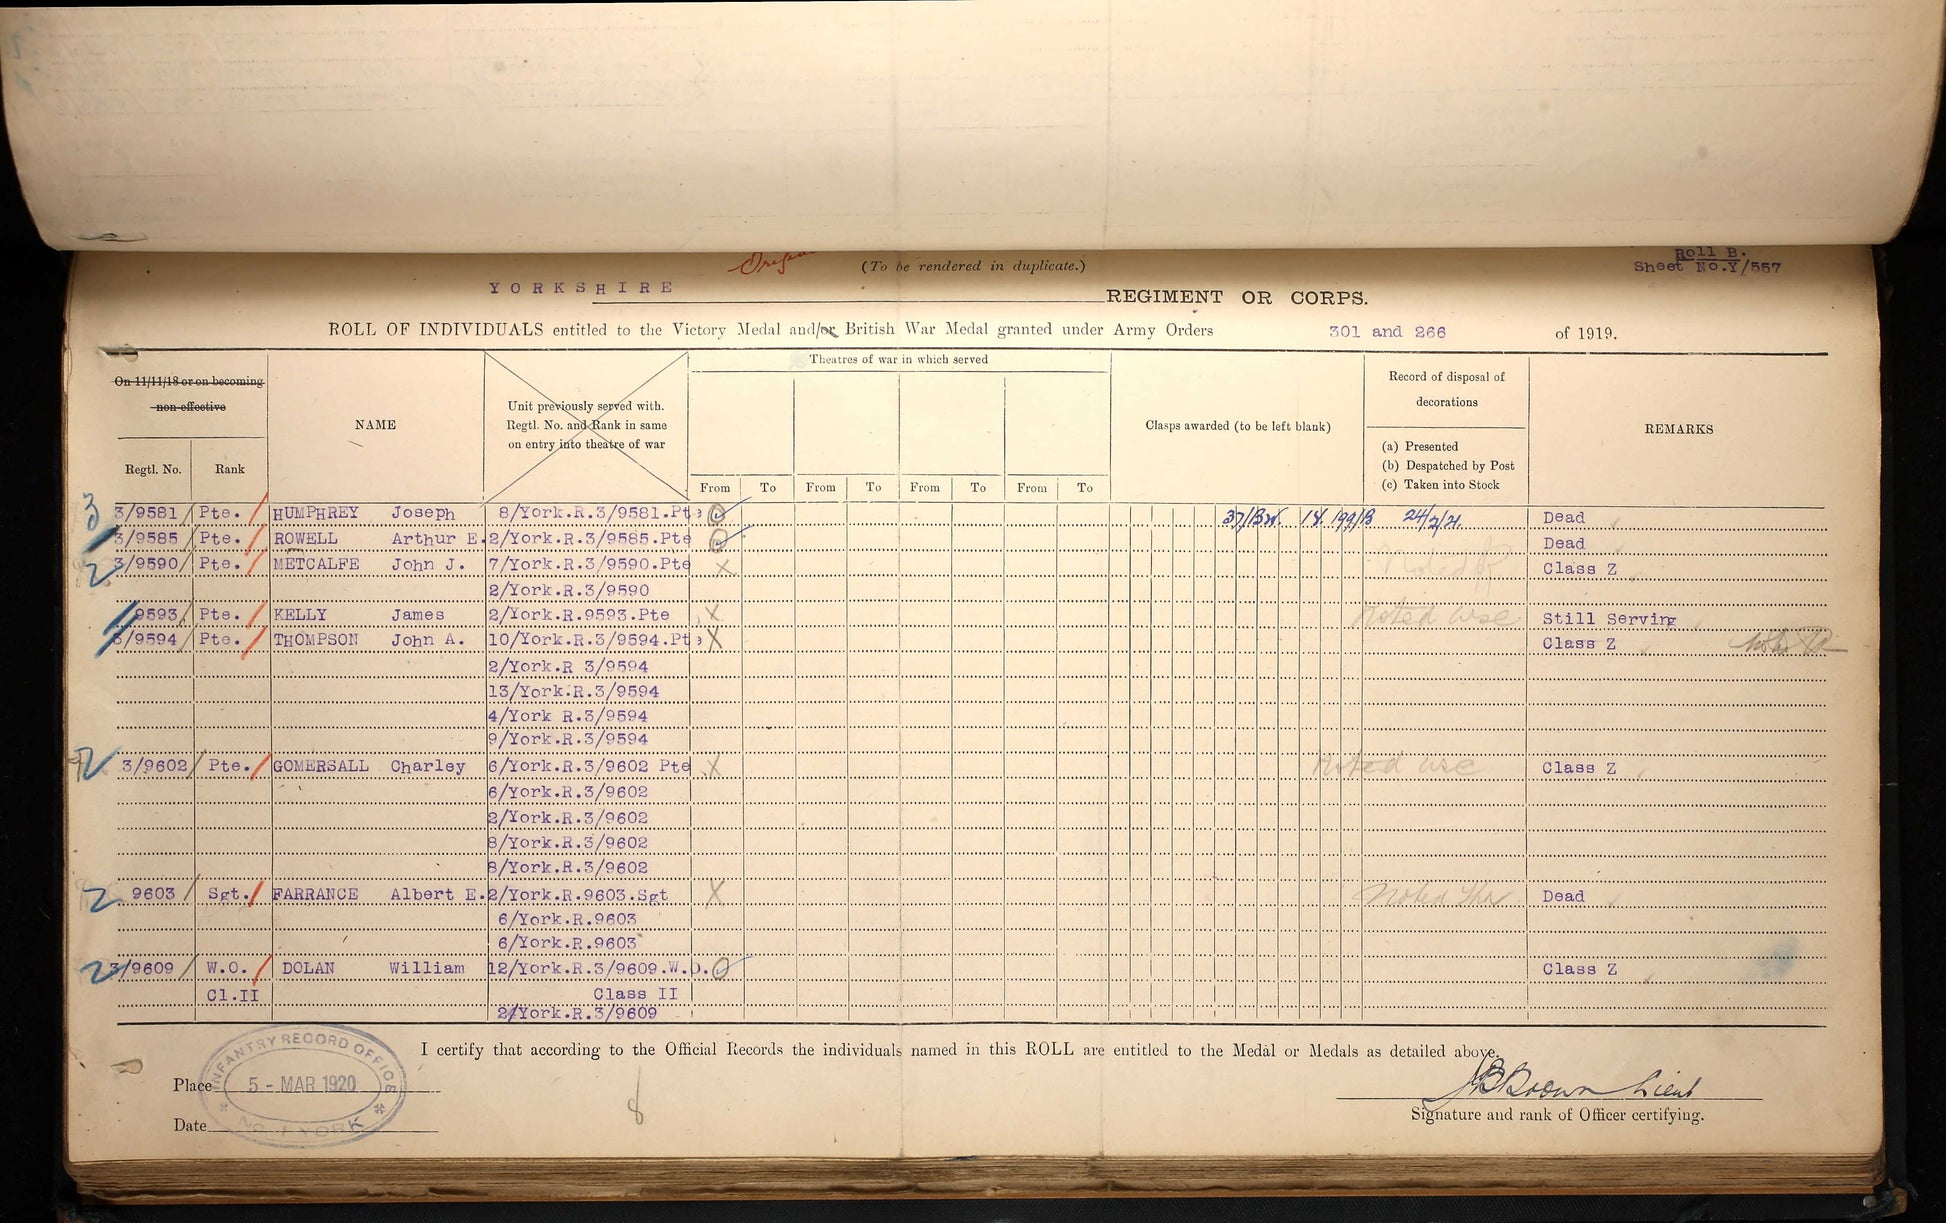 Roll B.
(To be rendered in duplicate.) Sheet No.Y/557
YORKSHIRE REGIMENT OR CORPS.
ROLL OF INDIVIDUALS entitled to the Victory Medal and/or British War Medal granted under Army Orders 301 and 266 of 1919.
On 11/11/18 or on becoming non-effective
Regtl. No. Rank
NAME
Unit previously served with. Regtl. No. and Rank in same on entry into theatre of war
Theatres of war in which served
From To From To From To From To
Clasps awarded (to be left blank)
Record of disposal of decorations
(a) Presented
(b) Despatched by Post
(c) Taken into Stock
REMARKS
3 3/9581 Pte. HUMPHREY Joseph 8/York.R.3/9581.Pte 24/2/21. Dead
3/9585 Pte. ROWELL Arthur E. 2/York.R.3/9585.Pte Dead
2 3/9590 Pte. METCALFE John J. 7/York.R.3/9590.Pte X Noted Class Z
2/York.R.3/9590
9593 Pte. KELLY James 2/York.R.9593.Pte X Noted Still Serving
3/9594 Pte. THOMPSON John A. 10/York.R.3/9594.Pte X Class Z
2/York.R 3/9594
13/York.R.3/9594
4/York R.3/9594
9/York.R.3/9594
2 3/9602 Pte. GOMERSALL Charley 6/York.R.3/9602 Pte X Noted Class Z
6/York.R.3/9602
2/York.R.3/9602
8/York.R.3/9602
8/York.R.3/9602
2 9603 Sgt. FARRANCE Albert E. 2/York.R.9603.Sgt X Noted Dead
6/York.R.9603
6/York.R.9603
2 3/9609 W.O. DOLAN William 12/York.R.3/9609.W.O. Class Z
Cl.II Class II
2/York.R.3/9609
I certify that according to the Official Records the individuals named in this ROLL are entitled to the Medal or Medals as detailed above.
INFANTRY RECORD OFFICE
Place 5 - MAR 1920
No. 1 YORK
8
Brown Lieut
Signature and rank of Officer certifying.
Date